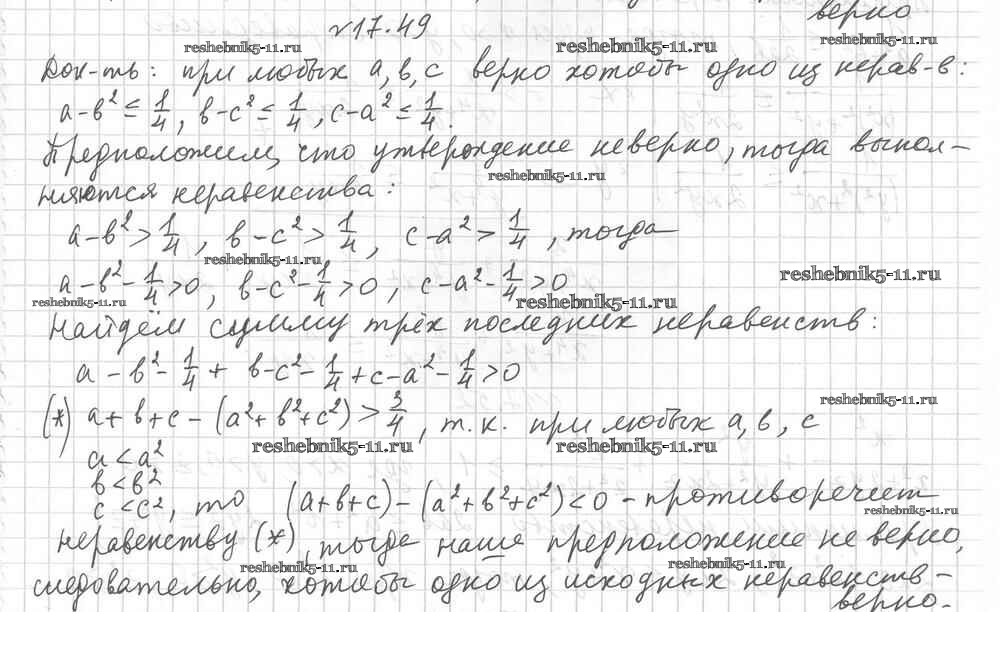 верно
№17.49
reshebnik5-11.ru reshebnik5-11.ru reshebnik5-11.ru
Док-ть: при любых а, в, с верно хотябы одно из нерав-в:
a-в² ≤ 1/4, в-c² ≤ 1/4, c-a² ≤ 1/4.
Предположим, что утверждение неверно, тогда выпол-
reshebnik5-11.ru
няются неравенства:
a-в² > 1/4, в-c² > 1/4, c-a² > 1/4, тогда
reshebnik5-11.ru
a-в²-1/4>0, в-c²-1/4>0, c-a²-1/4>0
reshebnik5-11.ru reshebnik5-11.ru reshebnik5-11.ru
Найдём сумму трёх последних неравенств:
a-в²-1/4+ в-c²-1/4+c-a²-1/4>0
reshebnik5-11.ru
(*) a+в+c-(a²+в²+c²)>3/4, т.к. при любых а, в, с
reshebnik5-11.ru reshebnik5-11.ru
a<a²
в<в²
c<c², то (a+в+c)-(a²+в²+c²)<0 - противоречит
reshebnik5-11.ru
неравенству (*), тогда наше предположение не верно,
reshebnik5-11.ru reshebnik5-11.ru
следовательно, хотябы одно из исходных неравенств-
верно.